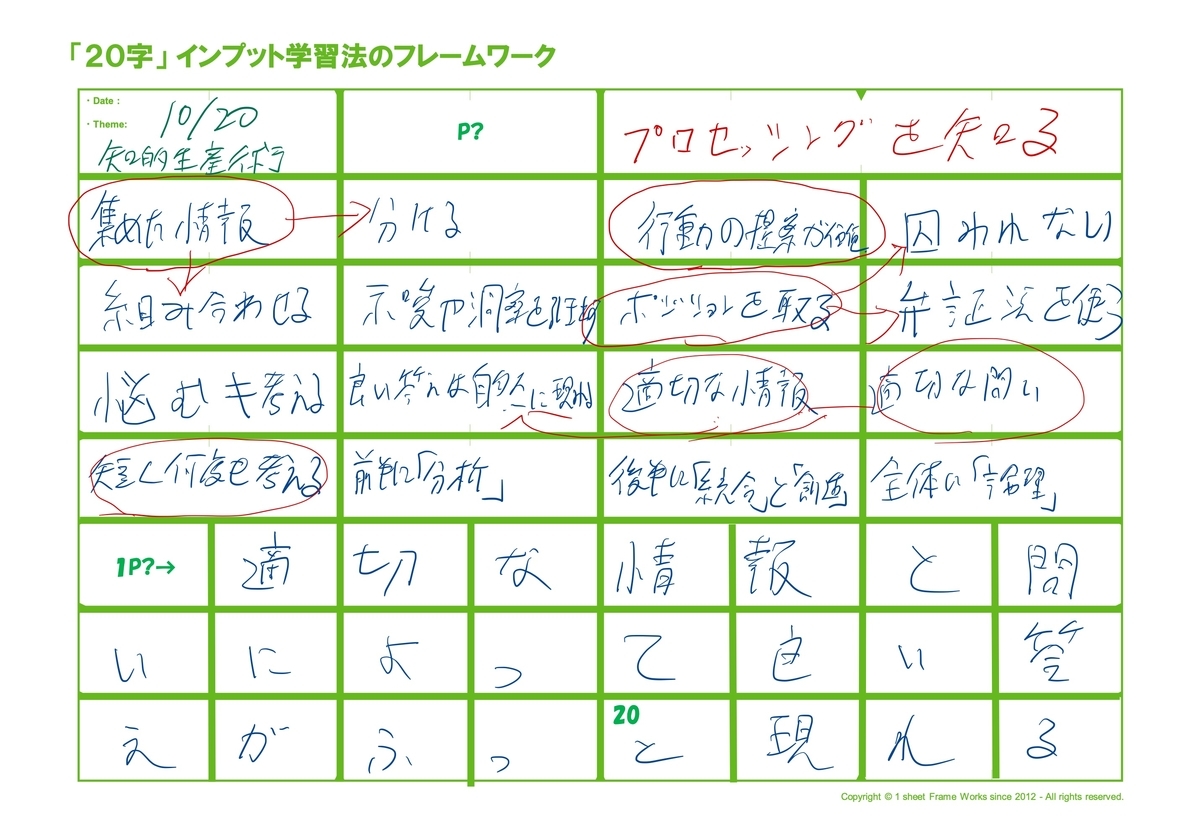 「20字」インプット学習法のフレームワーク
・Date： 10/20
・Theme: 知的生産術
P?
プロセッシングを知る
集めた情報 分ける 行動の提案が価値 囚われない
組み合わせる 示唆や洞察を ポジションを取る 弁証法を使う
悩むキ考える 良い答えは自然に現れる 適切な情報 適切な問い
短く何度も考える 前半に「分析」 後半に「統合」と「創造」 全体に「論理」
1P?→ 適 切 な 情 報 と 問
い に よ っ て 良 い 答
え が ふ っ 20 と 現 れ る
Copyright © 1 sheet Frame Works since 2012 - All rights reserved.